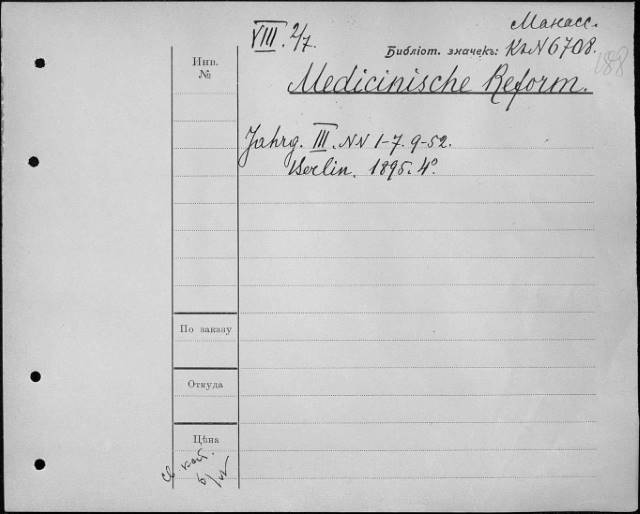 Манасс.
VIII. 2/7.
Библіот. значекъ: К№6708.
188
Инв.
№
Medicinische Reform.
Jahrg. III. NN 1-7. 9-52.
Berlin. 1895. 4º.
По заказу
Откуда
Цѣна
кат.